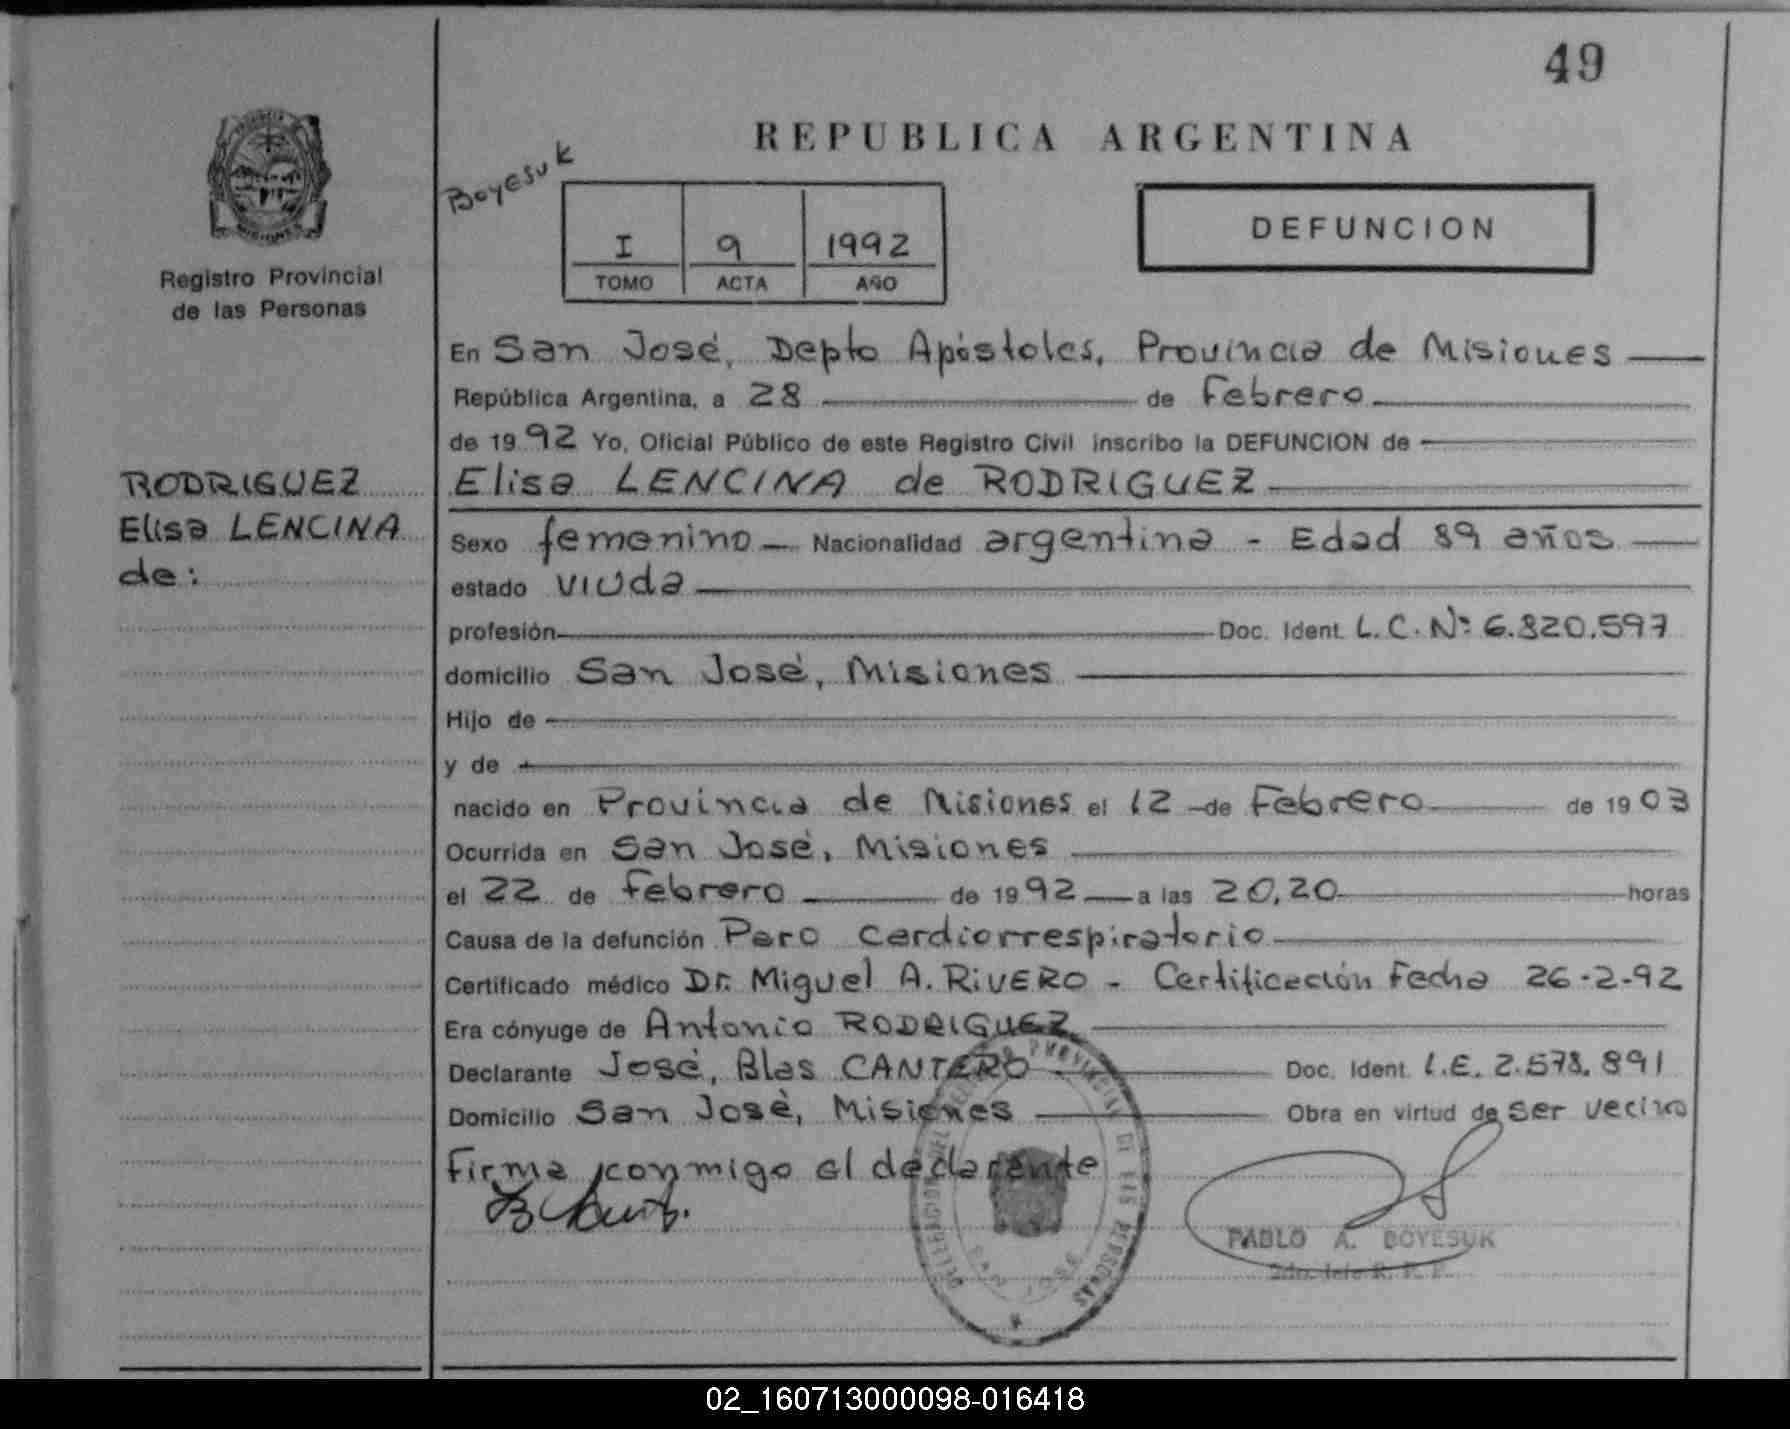 49
REPUBLICA ARGENTINA
Boyesuk
I 9 1992
TOMO ACTA AÑO
DEFUNCION
Registro Provincial
de las Personas
En San José, Depto Apóstoles, Provincia de Misiones
República Argentina, a 28 de Febrero
de 1992 Yo, Oficial Público de este Registro Civil inscribo la DEFUNCION de
Elisa LENCINA de RODRIGUEZ
RODRIGUEZ
Elisa LENCINA
de:
Sexo femenino Nacionalidad argentina - Edad 89 años
estado viuda
profesión Doc. Ident. L.C. Nº: 6.820.597
domicilio San José, Misiones
Hijo de
y de
nacido en Provincia de Misiones el 12 de Febrero de 1903
Ocurrida en San José, Misiones
el 22 de Febrero de 1992 a las 20,20 horas
Causa de la defunción Paro Cardiorrespiratorio
Certificado médico Dr. Miguel A. RIVERO - Certificación Fecha 26-2-92
Era cónyuge de Antonio RODRIGUEZ
Declarante José, Blas CANTERO Doc. Ident. L.E. 2.578.891
Domicilio San José, Misiones Obra en virtud de ser vecino
Firma conmigo el declarante
DELEGACION DEL REGISTRO PROVINCIAL DE LAS PERSONAS
SAN JOSE
PABLO A. BOYESUK
02_160713000098-016418